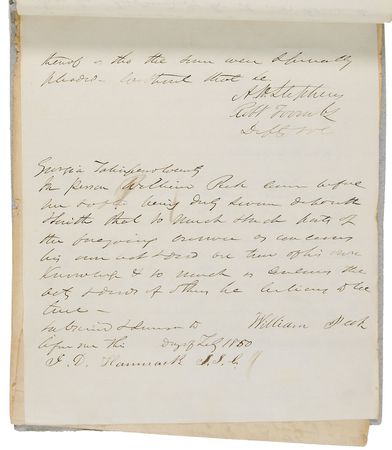 thereof as tho the same were specially
pleaded - Without that &c
A H Stephens
Robt Toombs
Defts Sol
Georgia Taliaferro County
In person William Peek came before
me & after being duly sworn deposeth
& saith that so much & such parts of
the foregoing answer as concerns
his own act & deed are true of his own
Knowledge & so much as concerns the
acts & deeds of others he believes to be
true -
Subscribed & sworn to William Peek
before me this day of July 1850
J. D. Hammack J. I. C.